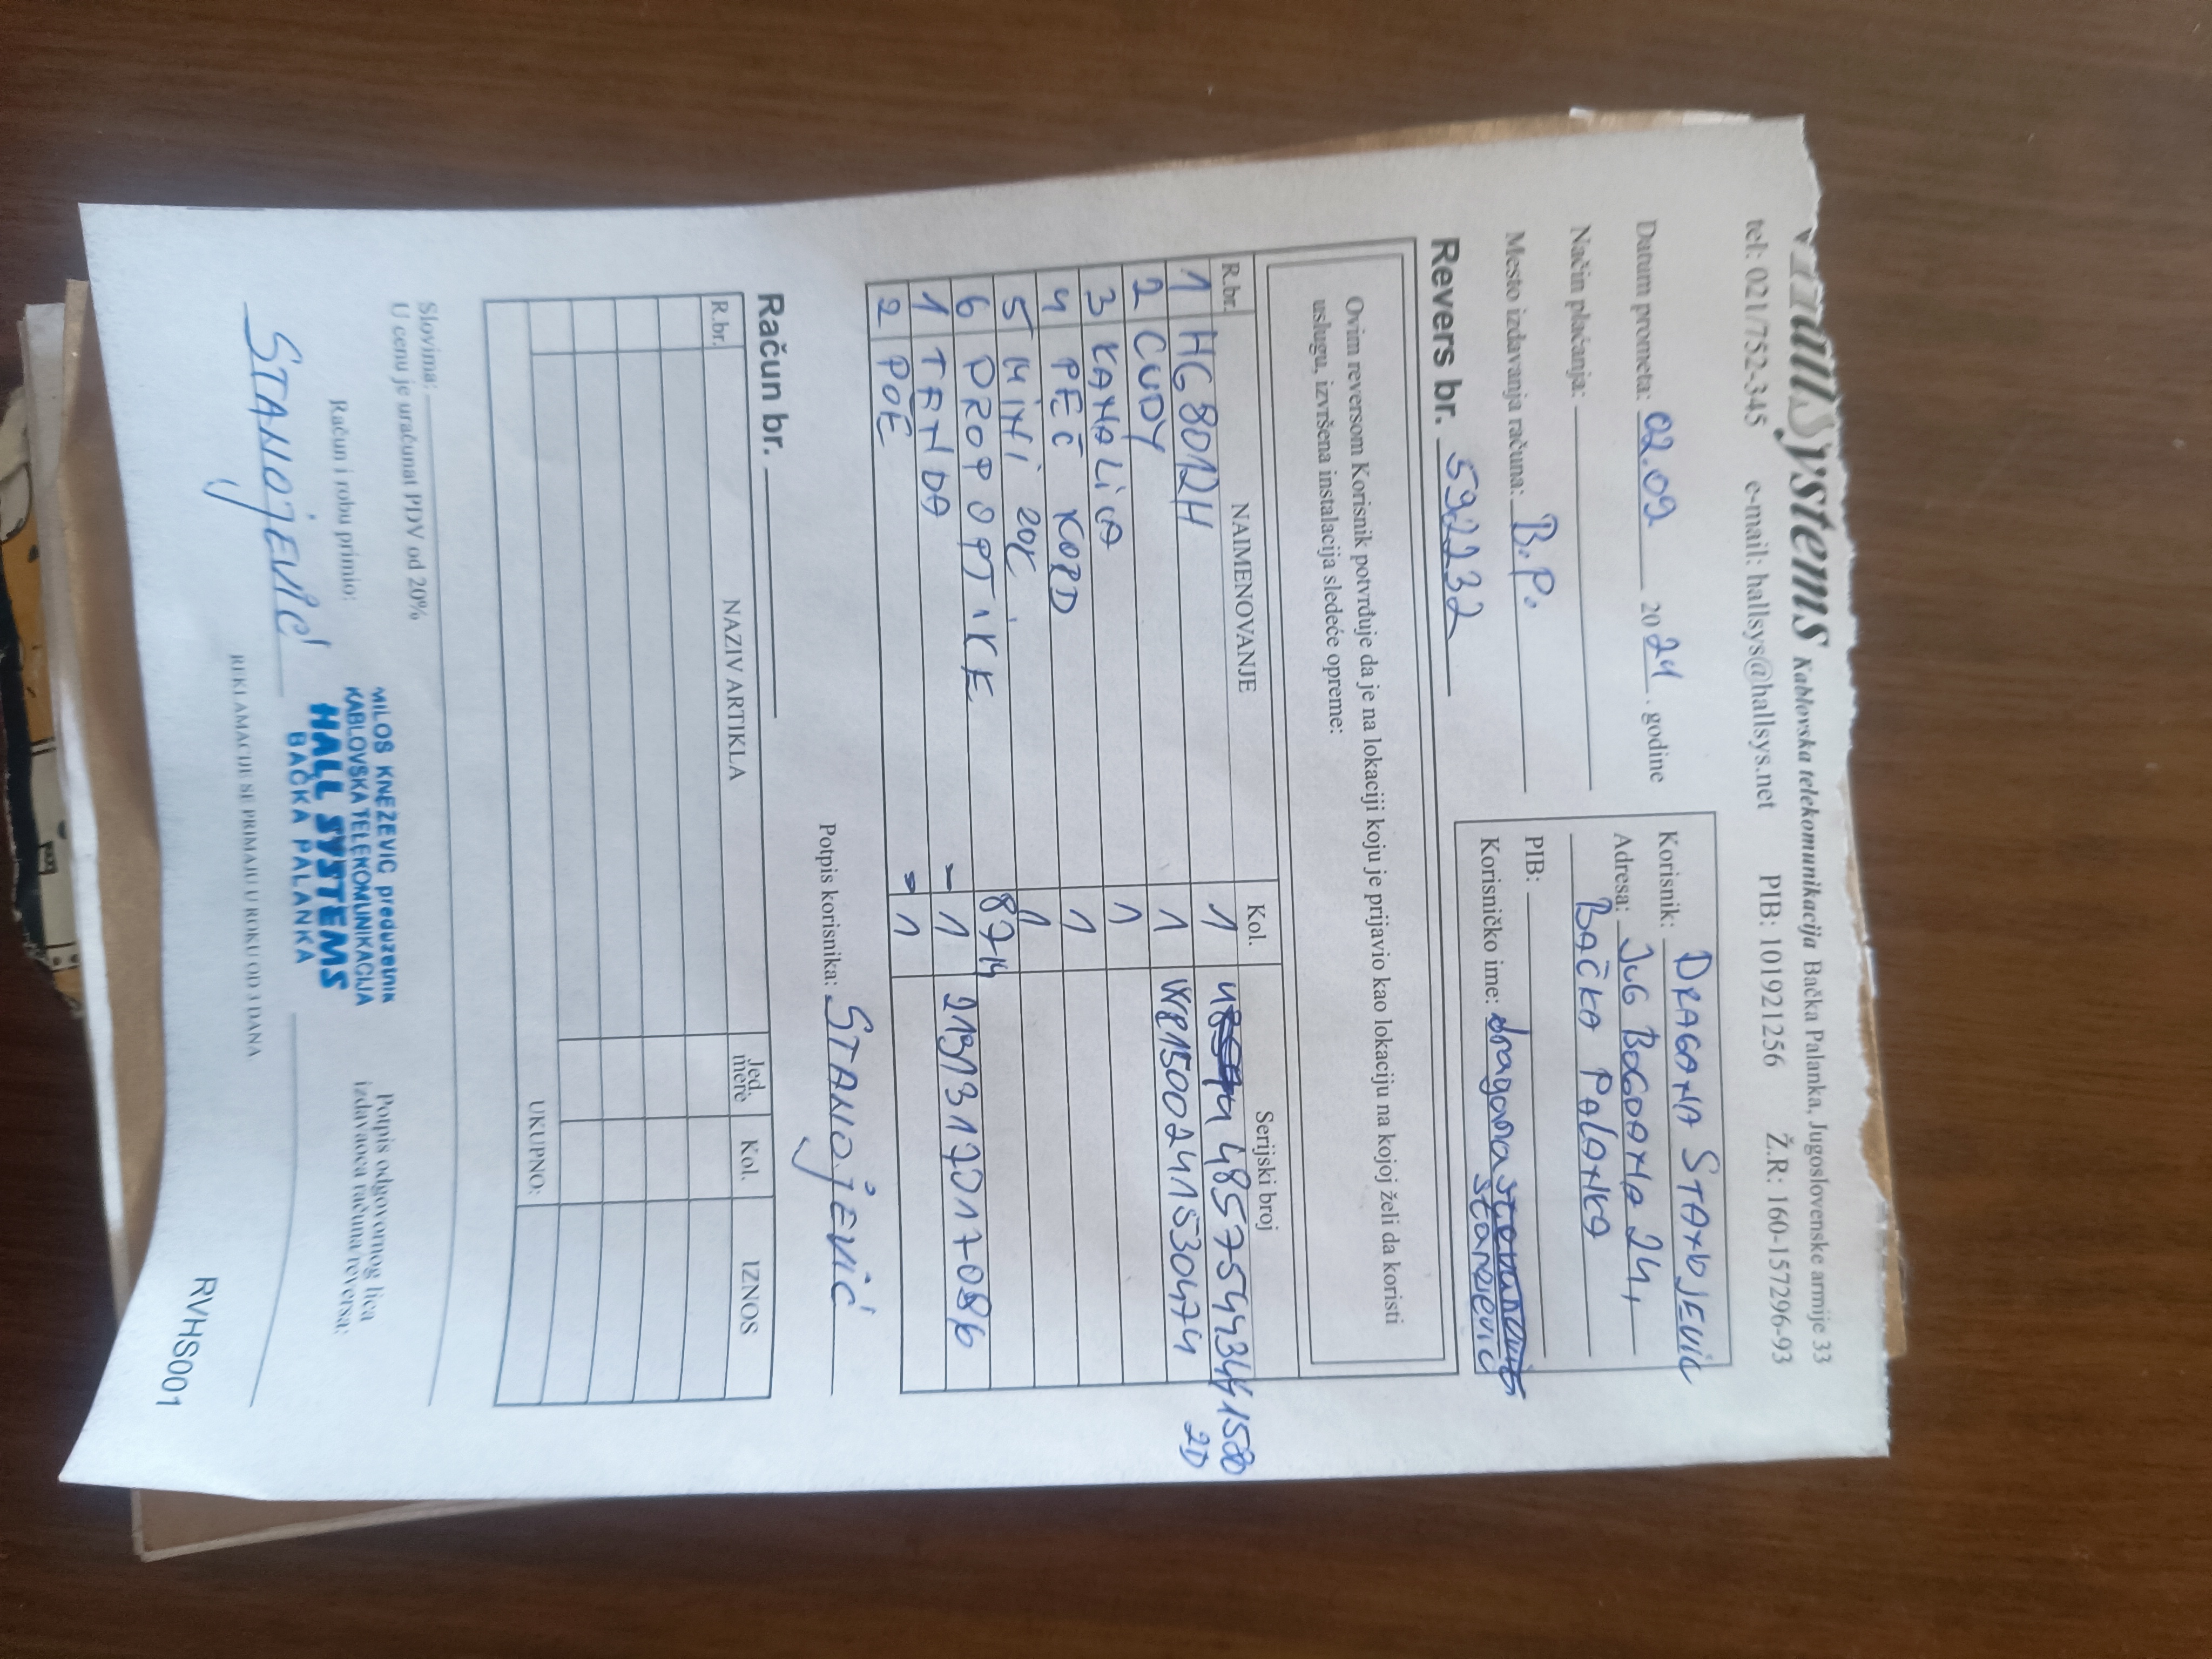 HallSystems Kablovska telekomunikacija Bačka Palanka, Jugoslovenske armije 33
tel: 021/752-345 e-mail: hallsys@hallsys.net PIB: 101921256 Ž.R: 160-157296-93
Datum prometa: 02.09 2024. godine
Način plaćanja:
Mesto izdavanja računa: B.P.
Korisnik: DRAGANA STANOJEVIĆ
Adresa: JUG BOGDANA 24,
BAČKA PALANKA
PIB:
Korisničko ime: dragana
stanojević
Revers br. 592232
Ovim reversom Korisnik potvrđuje da je na lokaciji koju je prijavio kao lokaciju na kojoj želi da koristi
uslugu, izvršena instalacija sledeće opreme:
R.br. NAIMENOVANJE Kol. Serijski broj
1 HG8012H 1
2 CUDY 1
3 KANALICA 1
4 PEČ KORD 1
5 MINI 1
6 DROP OPTIKE
1 TENDA - 1
2 POE - 1
Potpis korisnika: STANOJEVIĆ
Račun br.
R.br. NAZIV ARTIKLA Jed. mere Kol. IZNOS
UKUPNO:
Slovima:
U cenu je uračunat PDV od 20%
Račun i robu primio:
STANOJEVIĆ
MILOS KNEZEVIC preduzetnik
KABLOVSKA TELEKOMUNIKACIJA
HALL SYSTEMS
BAČKA PALANKA
Potpis odgovornog lica
izdavaoca računa/reversa:
REKLAMACIJE SE PRIMAJU U ROKU OD 3 DANA
RVHS001